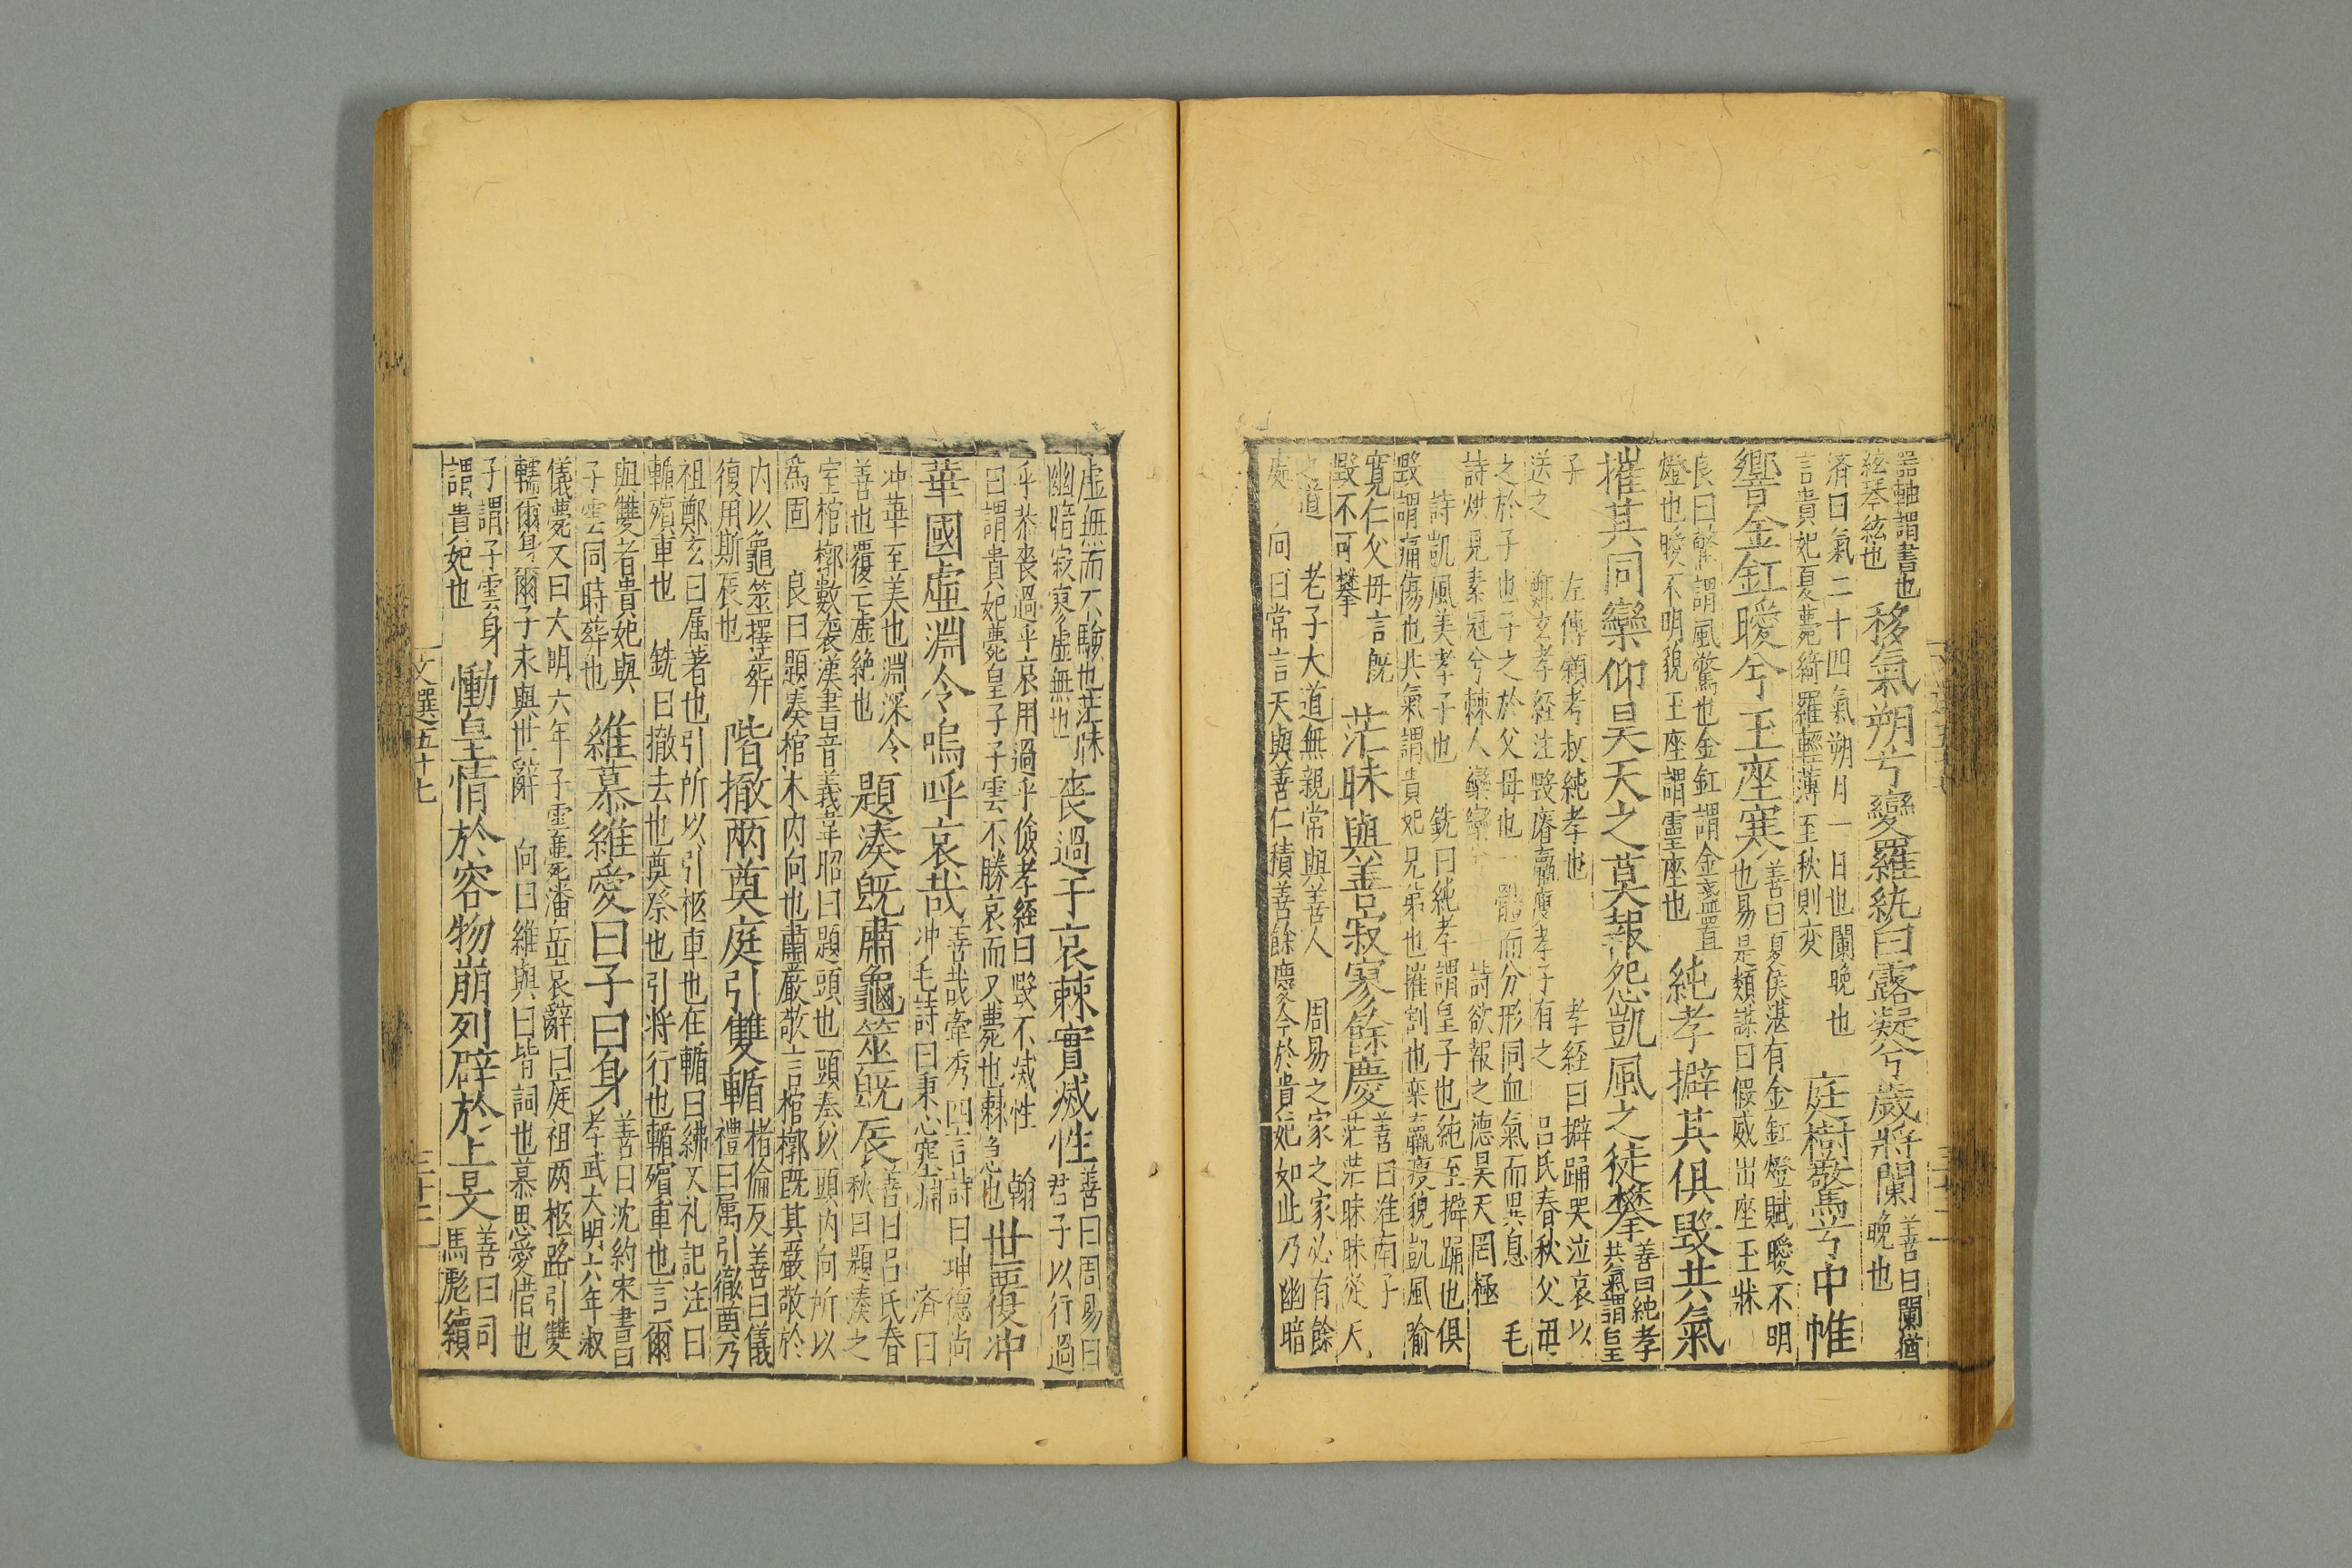 器軸謂書也
絃琴絃也
移氣朔兮變羅紈白露凝兮歲將闌
善曰闌猶
晚也
済曰氣二十四氣朔月一日也闌晚也
言貴妃夏薨綺羅輕薄至秋則変
庭樹驚兮中帷
響金釭曖兮玉座寒
善曰夏侯湛有金釭燈賦曖不明
也易是類謀曰假威出座玉牀
良曰驚謂風驚也金釭謂金盞置
燈也曖不明貌玉座謂靈座也
純孝擗其俱毀共氣
摧其同欒仰昊天之莫報怨凱風之徒攀
善曰純孝
共氣謂皇
子 左傳穎考叔純孝也 孝経曰擗踊哭泣哀以
送之 鄭玄孝経注毀瘠羸瘦孝子有之 呂氏春秋父毋
之於子也子之於父母也一體而分形同血氣而異息 毛
詩烘見素冠兮棘人欒欒兮 詩欲報之德昊天罔極
詩凱風美孝子也 銑曰純孝謂皇子也純至擗踊也俱
毀謂痛傷也共氣謂貴妃兄弟也摧割也栾羸瘦貌凱風喻
寛仁父毋言既
毀不可攀
茫昧與善寂寥餘慶
善曰淮南子
茫茫昧昧從天
之道 老子大道無親常與善人 周易之家之家必有餘
處 向曰常言天與善仁積善餘慶今於貴妃如此乃幽暗
虛無而不驗也茫昧
幽暗寂寥虛無也
喪過乎哀棘實滅性
善曰周易曰
君子以行過
乎恭喪過乎哀用過乎儉孝経曰毀不滅性 翰
曰謂貴妃薨皇子子雲不勝哀而又薨也棘急也
世覆冲
華國虛淵令嗚呼哀哉
善哉牽秀四言詩曰坤德尚
冲毛詩曰秉心塞淵 済曰
冲華至美也淵深令
善也覆亡虛絶也
題湊既肅龜筮既辰
善曰呂氏春
秋曰題湊之
室棺槨數襲漢書音義韋昭曰題頭也頭奏以頭内向所以
爲固 良曰題湊棺木内向也肅嚴敬言棺槨既其嚴敬於
内以龜筮擇葬
復用斯辰也
階撤兩奠庭引雙輴
楮倫反 善曰儀
禮曰属引徹奠乃
祖鄭玄曰属著也引所以引柩車也在輴曰紼又礼記注曰
輴殯車也 銑曰撤去也奠祭也引将行也輴殯車也言爾
與雙者貴妃與
子雲同時葬也
維慕維愛曰子曰身
善曰沈約宋書曰
孝武大明六年淑
儀薨又曰大明六年子雲薨潘岳哀辭曰庭祖两柩路引雙
轜爾身爾子永與世辭 向曰維與曰皆詞也慕思愛惜也
子謂子雲身
謂貴妃也
慟皇情於容物崩列辟於上旻
善曰司
馬彪續
文選五十七
三十二